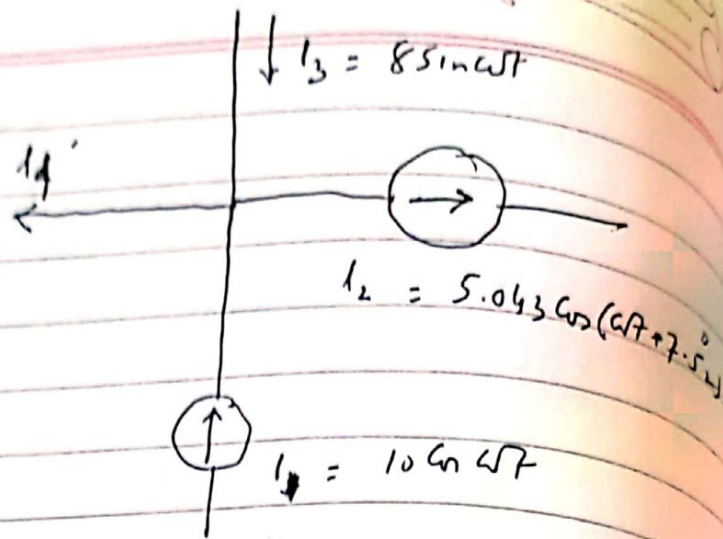 i3 = 8 sin ωt
i4
i2 = 5.043 Cos(ωt + 7.52°)
= 10 Cos ωt